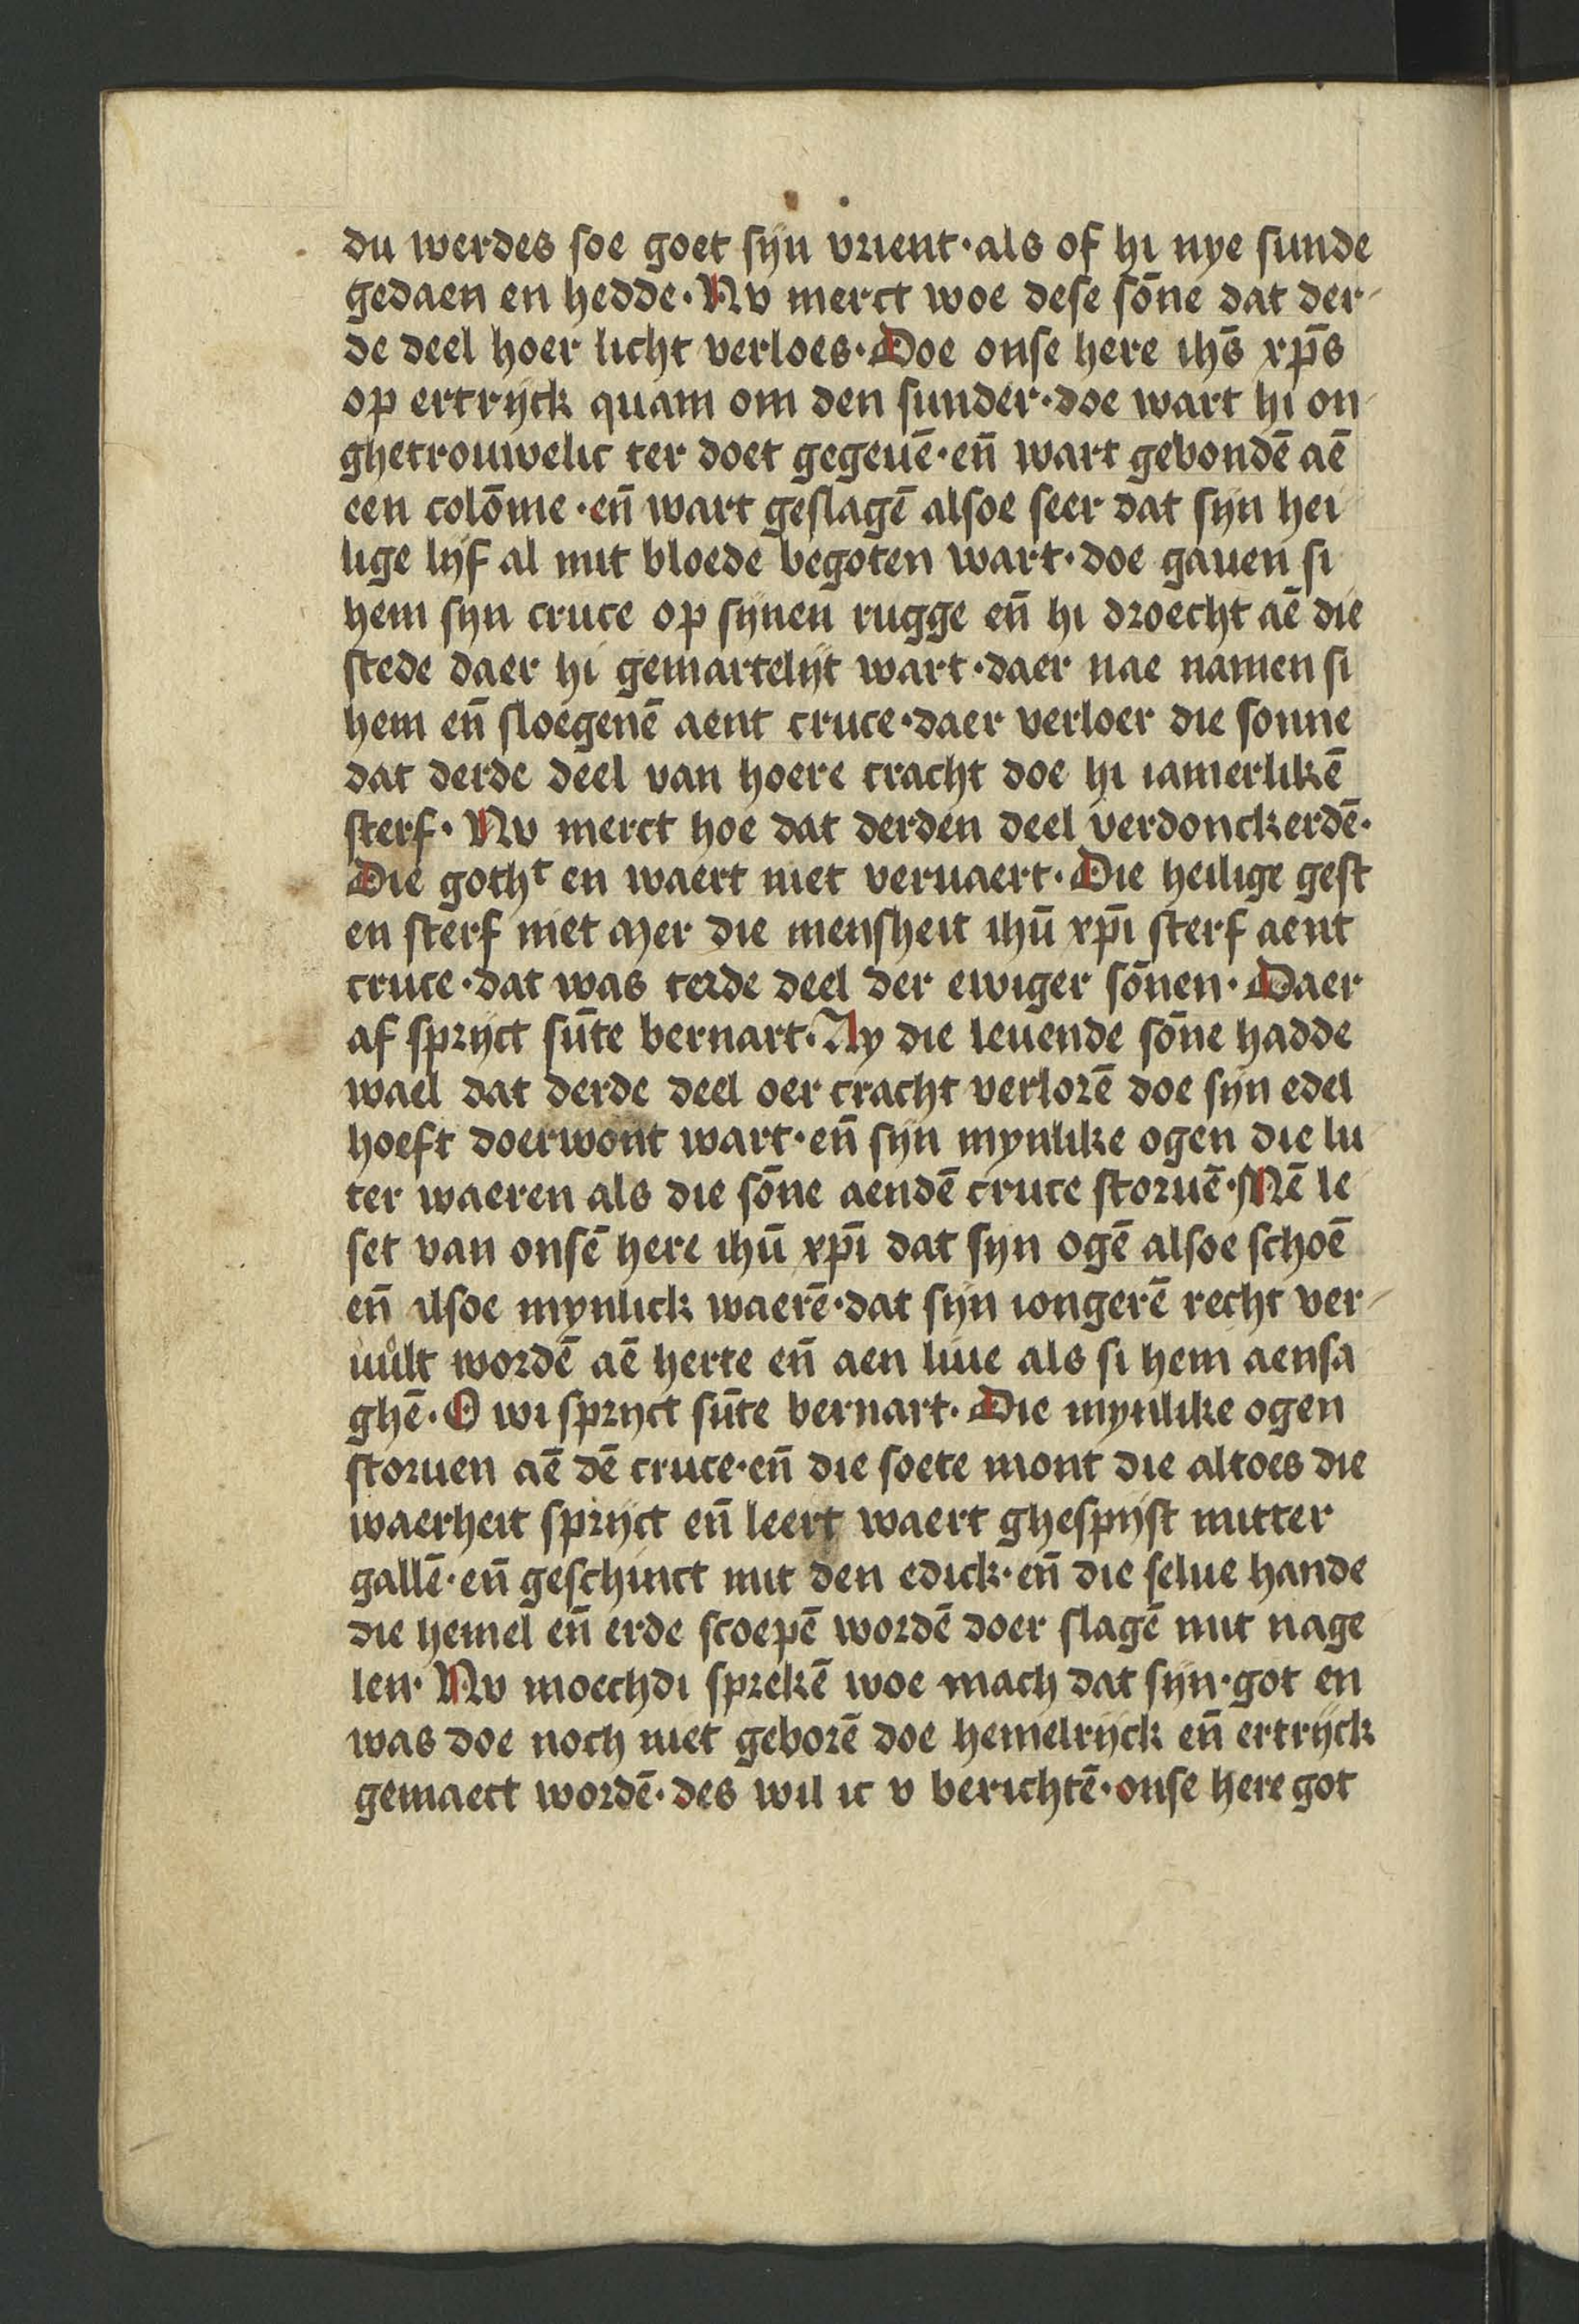 du werdes soe goet sijn vrient · als of hi nye sunde
gedaen en hedde · Nv merct woe dese sōne dat der-
de deel hoer licht verloes · Doe onse here ihūs xp̄s
op ertrijck quam om den sunder · doe wart hi on-
ghetrouwelic ter doet gegeuē · en̄ wart gebondē aē
een colōme · en̄ wart geslagē alsoe seer dat sijn hei
lige lijf al mit bloede begoten wart · doe gauen si
hem sijn cruce op sijnen rugge en̄ hi droecht aē die
stede daer hi gemartelijt wart · daer nae namen si
hem en̄ sloegenē aent cruce · daer verloer die sonne
dat derde deel van hoere cracht doe hi iamerlikē
sterf · Nv merct hoe dat derden deel verdonckerdē ·
Die gothᵗ en waert niet veruaert · Die heilige gest
en sterf niet mer die mensheit ihū xp̄i sterf aent
cruce · dat was terde deel der ewiger sōnen · Daer
af sprijct sūte bernart · Ay die leuende sōne hadde
wael dat derde deel oer cracht verlorē doe sijn edel
hoeft doerwont wart · en̄ sijn mynlike ogen die lu
ter waeren als die sōne aendē cruce storuē · Mē le
set van onsē here ihū xp̄i dat sijn ogē alsoe schoē
en̄ alsoe mynlick waerē · dat sijn iongerē recht ver-
uůlt wordē aē herte en̄ aen liue als si hem aensa
ghē · O wi sprijct sūte bernart · Die mynlike ogen
storuen aē dē cruce · en̄ die soete mont die altoes die
waerheit sprijct en̄ leert waert ghespijst mitter
gallē · en̄ geschinct mit den edick · en̄ die selue hande
die hemel en̄ erde scoepē wordē doer slagē mit nage
len · Nv moechdi sprekē woe mach dat sijn · got en
was doe noch niet geborē doe hemelrijck en̄ ertrijck
gemaect wordē · des wil ic v berichtē · onse here got